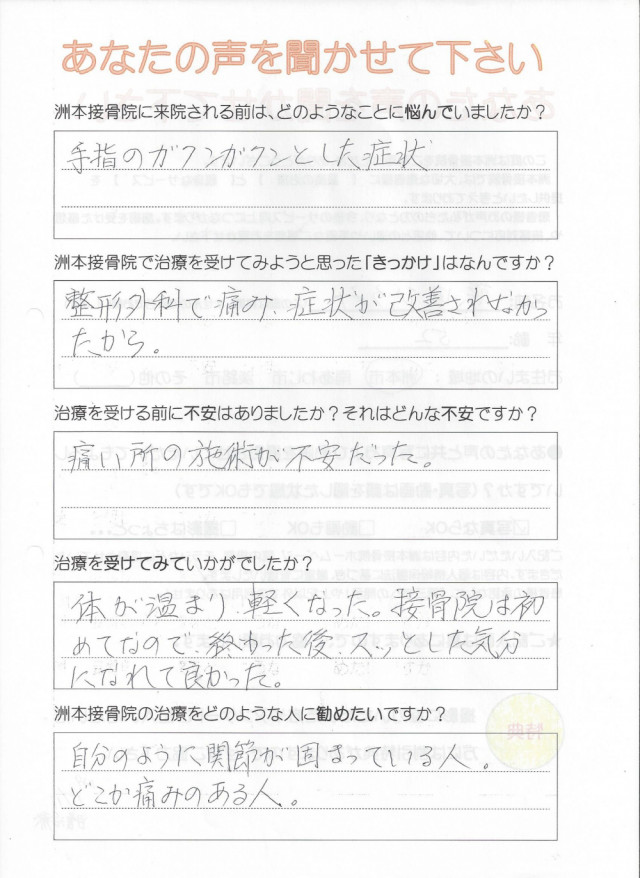 あなたの声を聞かせて下さい
洲本接骨院に来院される前は、どのようなことに悩んでいましたか？
手指のガクンガクンとした症状
洲本接骨院で治療を受けてみようと思った「きっかけ」はなんですか？
整形外科で痛み、症状が改善されなかっ
たから。
治療を受ける前に不安はありましたか？それはどんな不安ですか？
痛い所の施術が不安だった。
治療を受けてみていかがでしたか？
体が温まり、軽くなった。接骨院は初
めてなので、終わった後、スッとした気分
になれて良かった。
洲本接骨院の治療をどのような人に勧めたいですか？
自分のように関節が固まっている人。
どこか痛みのある人。
特典